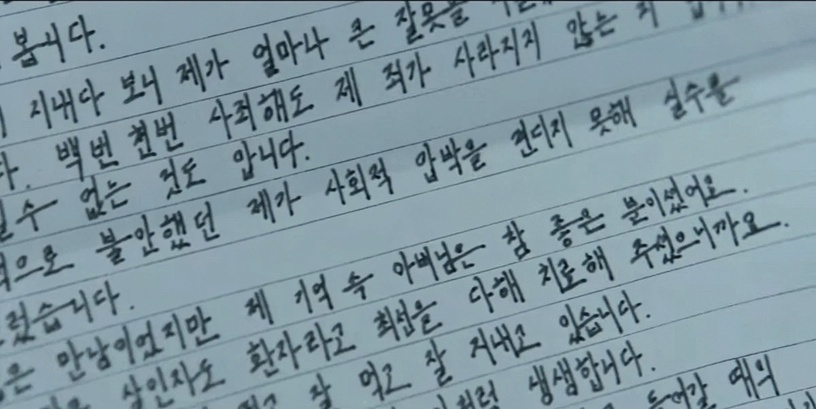 봅니다.
지내다 보니 제가 얼마나 큰 잘못을
백번 천번 사죄해도 제 죄가 사라지지 않는
수 없는 것도 압니다.
불안했던 제가 사회적 압박을 견디지 못해 실수를
제 기억 속 아버님은 참 좋은 분이셨어요.
만남이었지만
살인자도 환자라고 최선을 다해 치료해 주셨으니까요.
잘 먹고 잘 지내고 있습니다.
생생합니다.
들어갈 때의